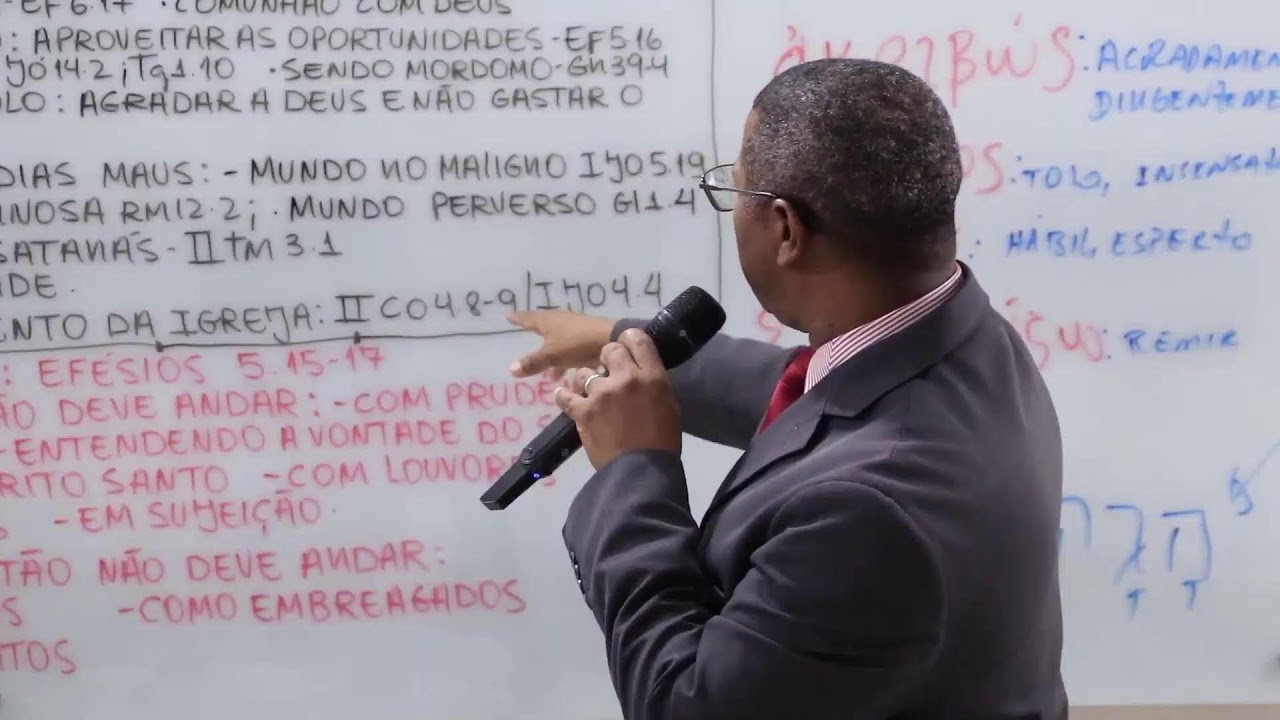 -EF 6.17 · COMUNHÃO COM DEUS
: APROVEITAR AS OPORTUNIDADES - EF 5.16
JÓ 14.2; Tg 1.10 · SENDO MORDOMO - GN 39.4
LO : AGRADAR A DEUS E NÃO GASTAR O
DIAS MAUS: - MUNDO NO MALIGNO I JO 5.19
INOSA RM 12.2; · MUNDO PERVERSO Gl 1.4
SATANÁS - II TM 3.1
DE.
ENTO DA IGREJA: II CO 4.8-9/I JO 4.4
: EFÉSIOS 5.15-17
ÃO DEVE ANDAR: - COM PRUDÊ
- ENTENDENDO A VONTADE DO S
RITO SANTO - COM LOUVORES
- EM SUJEIÇÃO.
TÃO NÃO DEVE ANDAR:
S - COMO EMBREAGADOS
TOS
ΙβώΣ: AGRADAMEN
DILIGENTEME
OS: TOLO, INSENSA
: HÁBIL, ESPERTO
: REMIR
T T